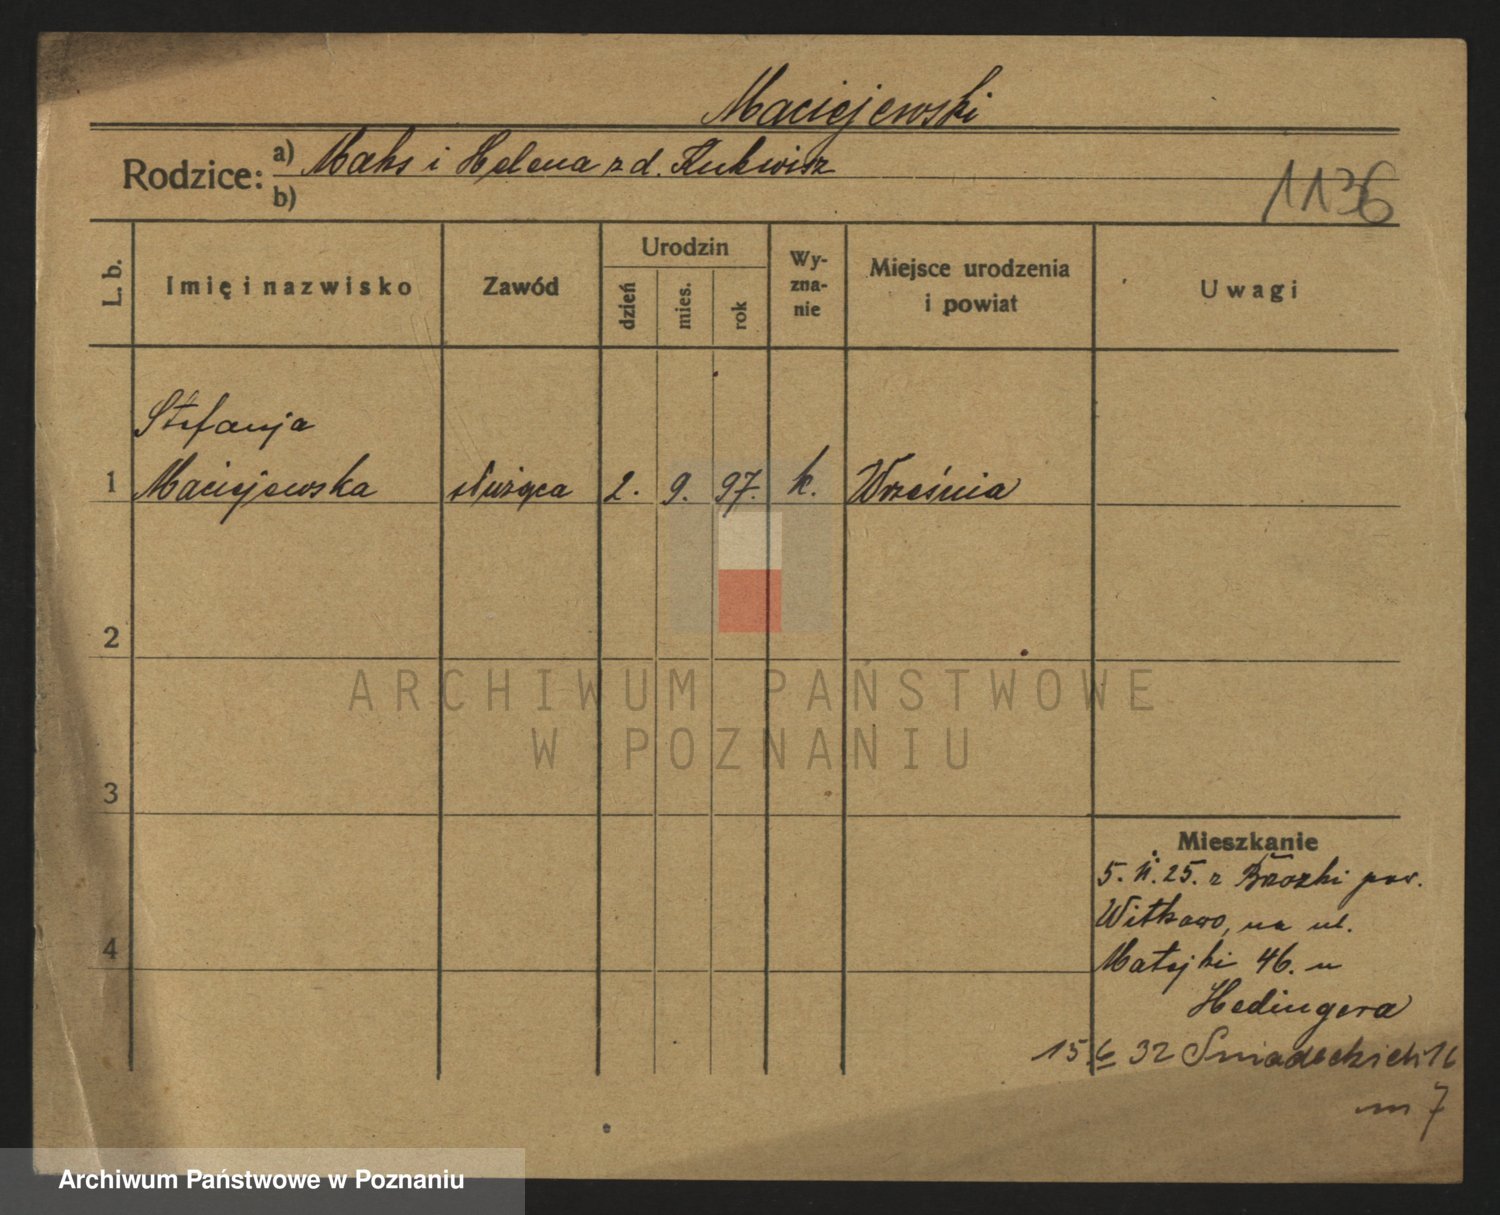 Maciejewski
Rodzice: a) Maks i Helena z d. Kukwisz
b)
1136
L. b.
Imię i nazwisko
Zawód
Urodzin
dzień
mies.
rok
Wy-
zna-
nie
Miejsce urodzenia
i powiat
Uwagi
Stefanja
1 Maciejewska służąca 2. 9. 97. k. Września
2
ARCHIWUM PAŃSTWOWE
W POZNANIU
3
Mieszkanie
5. 25. z pow.
Witkowo, na ul.
4
Matejki 46. u
Hedingera
15.6 32 Śniadeckich 16
m 7
Archiwum Państwowe w Poznaniu